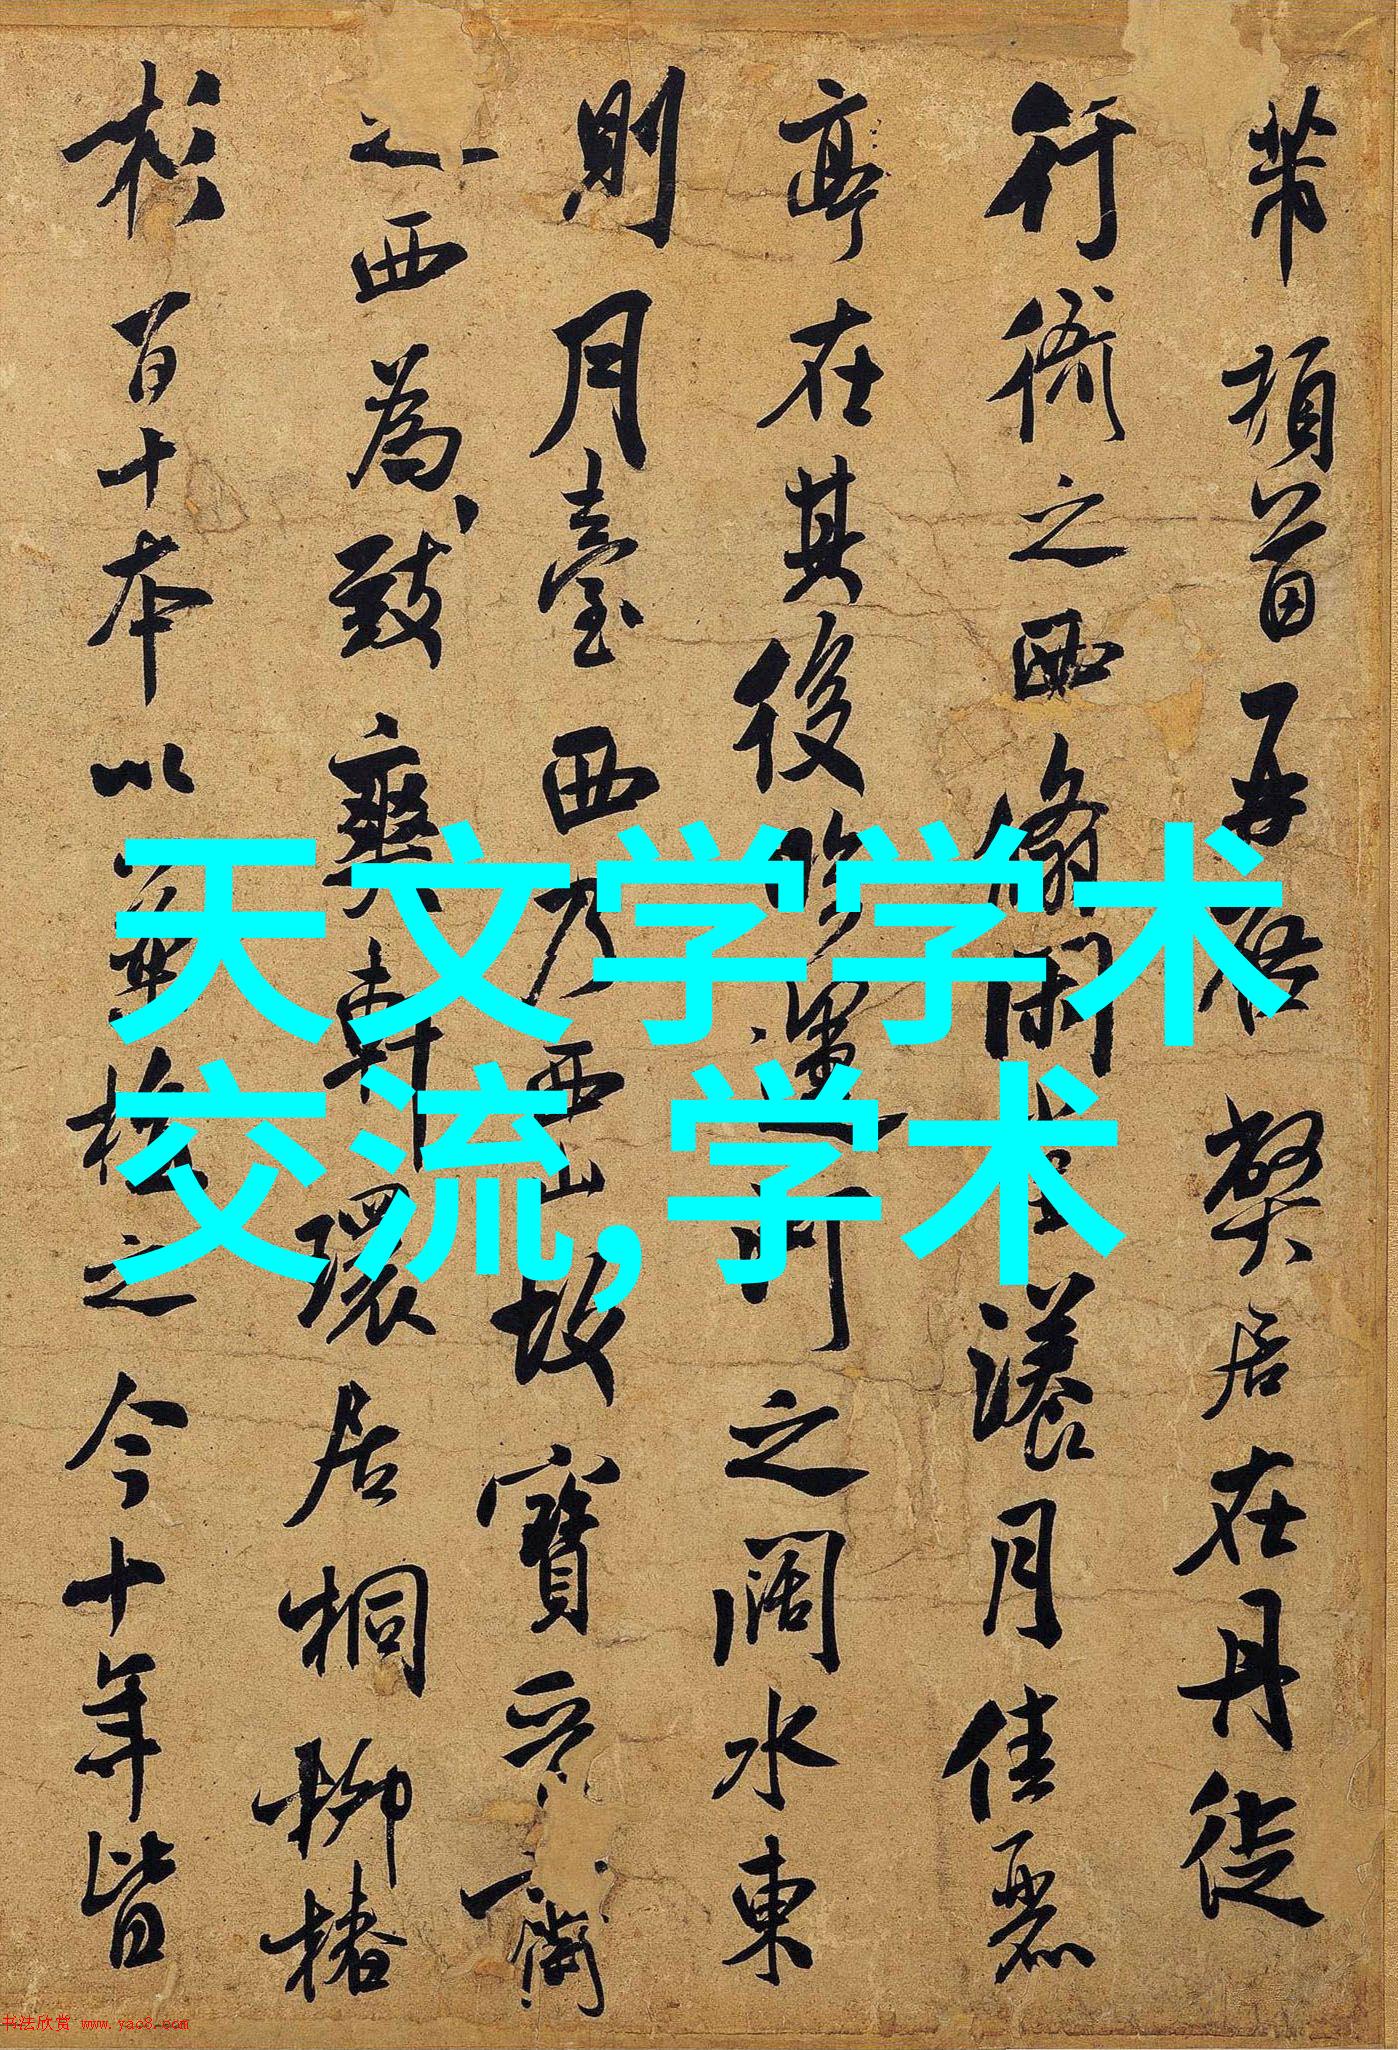 芾頓首再啓弊居在丹徒
行衙之西翛閑堂漾月佳麗
亭在其後臨運河之闊水東
則月臺西乃西山故寶晉齋
之西為致爽軒環居桐柳椿
杉百十本以植之今十年皆
天文学学术
交流,学术
书法欣赏 www.yac8.com